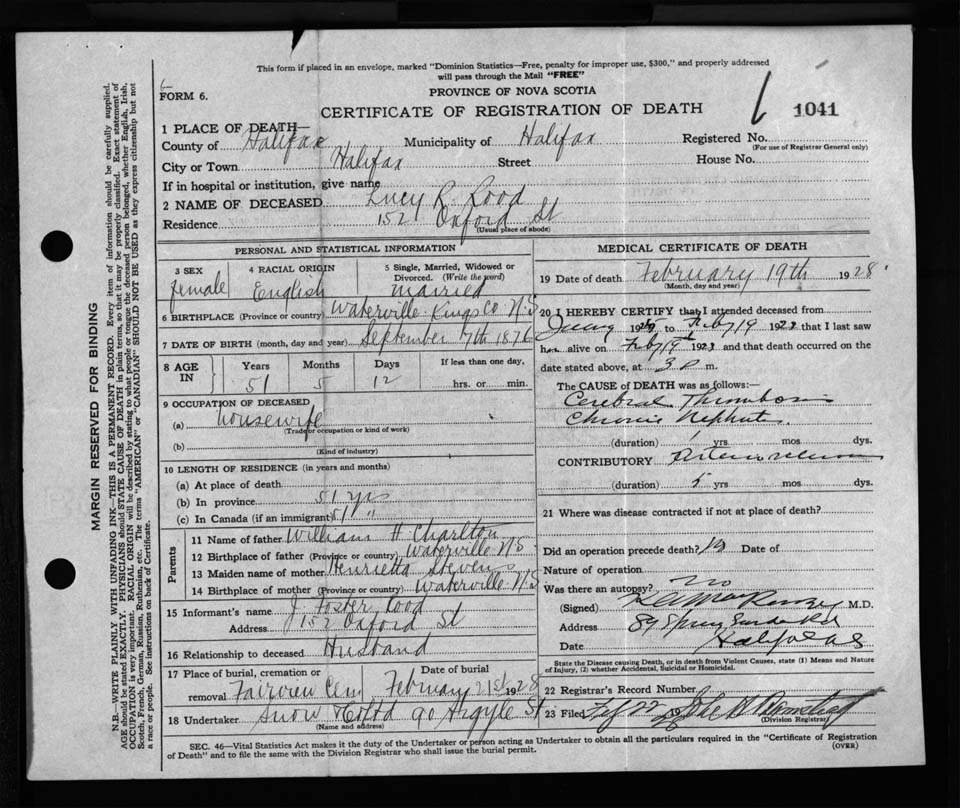 This form if placed in an envelope, marked "Dominion Statistics—Free, penalty for improper use, $300," and properly addressed
will pass through the Mail "FREE"
FORM 6.
PROVINCE OF NOVA SCOTIA
CERTIFICATE OF REGISTRATION OF DEATH
1041
1 PLACE OF DEATH—
County of Halifax Municipality of Halifax Registered No.
(For use of Registrar General only)
City or Town Halifax Street House No.
If in hospital or institution, give name
2 NAME OF DECEASED Lucy R. Rood
Residence 152 Oxford St
(Usual place of abode)
PERSONAL AND STATISTICAL INFORMATION
3 SEX 4 RACIAL ORIGIN 5 Single, Married, Widowed or Divorced. (Write the word)
female English married
6 BIRTHPLACE (Province or country) Waterville Kings Co. N.S
7 DATE OF BIRTH (month, day and year) September 7th 1876
8 AGE IN Years Months Days If less than one day,
51 5 12 hrs. or min.
9 OCCUPATION OF DECEASED
(a) housewife
(Trade or occupation or kind of work)
(b)
(Kind of industry)
10 LENGTH OF RESIDENCE (in years and months)
(a) At place of death
(b) In province 51 yrs
(c) In Canada (if an immigrant) 51 "
Parents
11 Name of father William H Charlton
12 Birthplace of father (Province or country) Waterville N.S
13 Maiden name of mother Henrietta Stevens
14 Birthplace of mother (Province or country) Waterville N.S
15 Informant's name J. Foster Rood
Address 152 Oxford St
16 Relationship to deceased Husband
17 Place of burial, cremation or removal Date of burial
Fairview Cem February 21st 1928
18 Undertaker Snow & Co Ltd 90 Argyle St
(Name and address)
MEDICAL CERTIFICATE OF DEATH
19 Date of death February 19th 1928
(Month, day and year)
20 I HEREBY CERTIFY that I attended deceased from
19 to Feby 19 1928 that I last saw
h alive on Feby 19 1928 and that death occurred on the
date stated above, at 3 m.
The CAUSE OF DEATH was as follows:
Cerebral Thrombosis
Chronic Nephritis
(duration) 1 yrs mos dys.
CONTRIBUTORY
(duration) 5 yrs mos dys.
21 Where was disease contracted if not at place of death?
Did an operation precede death? Date of
Nature of operation
Was there an autopsy? no
(Signed) M.D.
Address 89 Spring Garden Rd
Date Halifax N.S
State the Disease causing Death, or in death from Violent Causes, state (1) Means and Nature
of Injury, (2) whether Accidental, Suicidal or Homicidal.
22 Registrar's Record Number
23 Filed Feb 22 19
(Division Registrar)
SEC. 46—Vital Statistics Act makes it the duty of the Undertaker or person acting as Undertaker to obtain all the particulars required in the "Certificate of Registration
of Death" and to file the same with the Division Registrar who shall issue the burial permit.
(OVER)
MARGIN RESERVED FOR BINDING
N.B.—WRITE PLAINLY WITH UNFADING INK—THIS IS A PERMANENT RECORD. Every item of information should be carefully supplied.
AGE should be stated EXACTLY. PHYSICIANS should STATE CAUSE OF DEATH in plain terms, so that it may be properly classified. Exact statement of
OCCUPATION is very important. RACIAL ORIGIN will be described by stating to what people or tongue the deceased person belonged, whether English, Irish,
Scotch, French, German, Russian, Ruthenian, etc. The terms "AMERICAN" or "CANADIAN" SHOULD NOT BE USED as they express citizenship but not
a race or people. See instructions on back of Certificate.